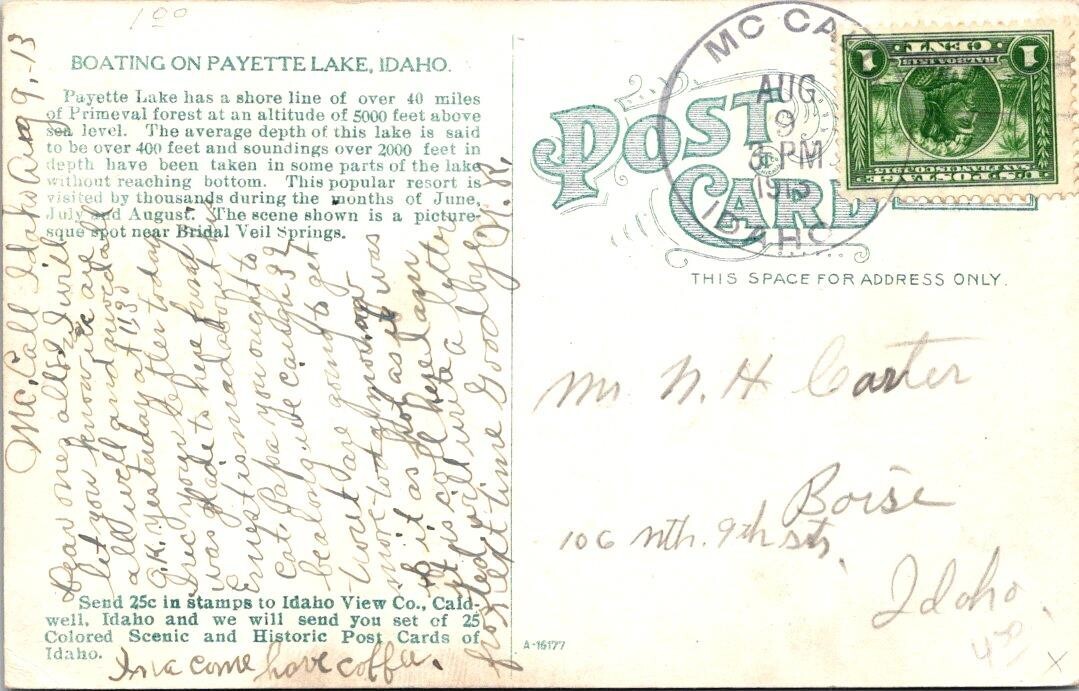 1 00
BOATING ON PAYETTE LAKE, IDAHO.
Payette Lake has a shore line of over 40 miles
of Primeval forest at an altitude of 5000 feet above
sea level. The average depth of this lake is said
to be over 400 feet and soundings over 2000 feet in
depth have been taken in some parts of the lake
without reaching bottom. This popular resort is
visited by thousands during the months of June,
July and August. The scene shown is a picture-
sque spot near Bridal Veil Springs.
Mc.Call Idaho Aug 9,-13
Dear ones all I will
let you know we are
all well and arived
O.K. yesterday at 1130
your letter today
was glad to here from
Ernest is mad about the
cat. Papa you ought to
be along, we caught 32
trout are going to get
more to
is it as hot as it was
it is cool here I am
will write a letter
next time Goodbye
Send 25c in stamps to Idaho View Co., Cald-
well, Idaho and we will send you set of 25
Colored Scenic and Historic Post Cards of
Idaho.
come have coffee.
POST CARD
MC CA
AUG
9
3 PM
1913
IDAHO
U.S. POSTAGE
SAN FRANCISCO 1915
BALBOA 1513
1 CENT 1
THIS SPACE FOR ADDRESS ONLY.
Mr N. H Carter
Boise
106 Nth. 9th st,
Idaho.
A-16177
4 50
X